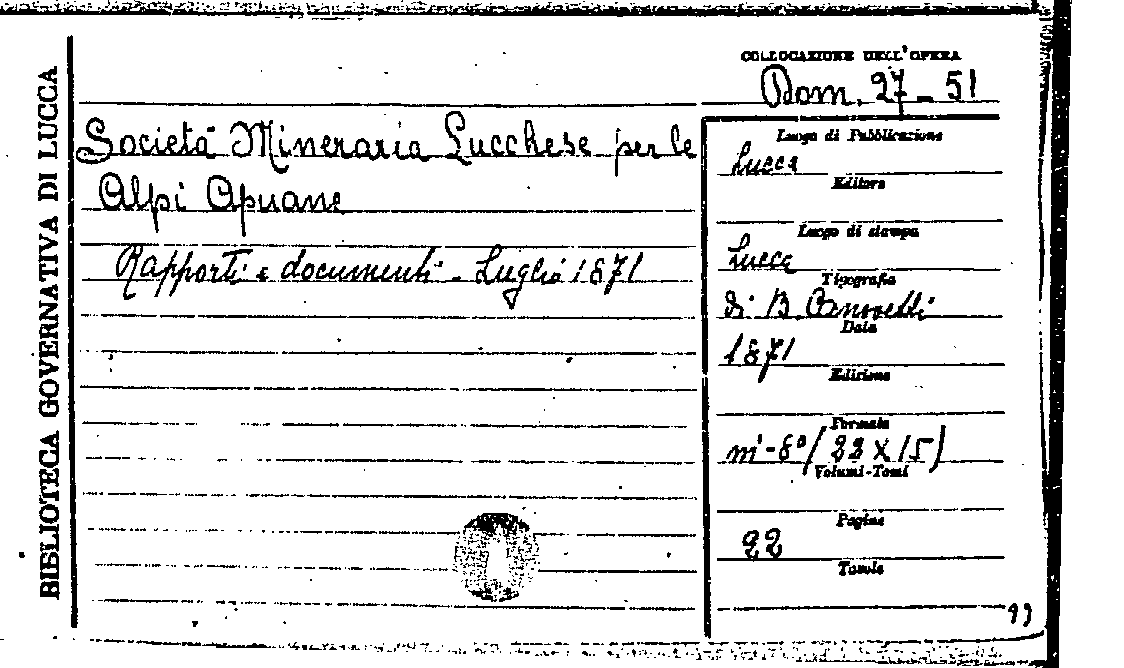 BIBLIOTECA GOVERNATIVA DI LUCCA
COLLOCAZIONE DELL'OPERA
Dom. 27 - 51
Società Mineraria Lucchese per le
Alpi Apuane
Rapporti e documenti - Luglio 1871
Luogo di Pubblicazione
Lucca
Editore
Luogo di stampa
Lucca
Tipografia
di B. Canovetti
Data
1871
Edizione
Formato
in-8° (22 X 15)
Volumi-Tomi
Pagine
22
Tavole